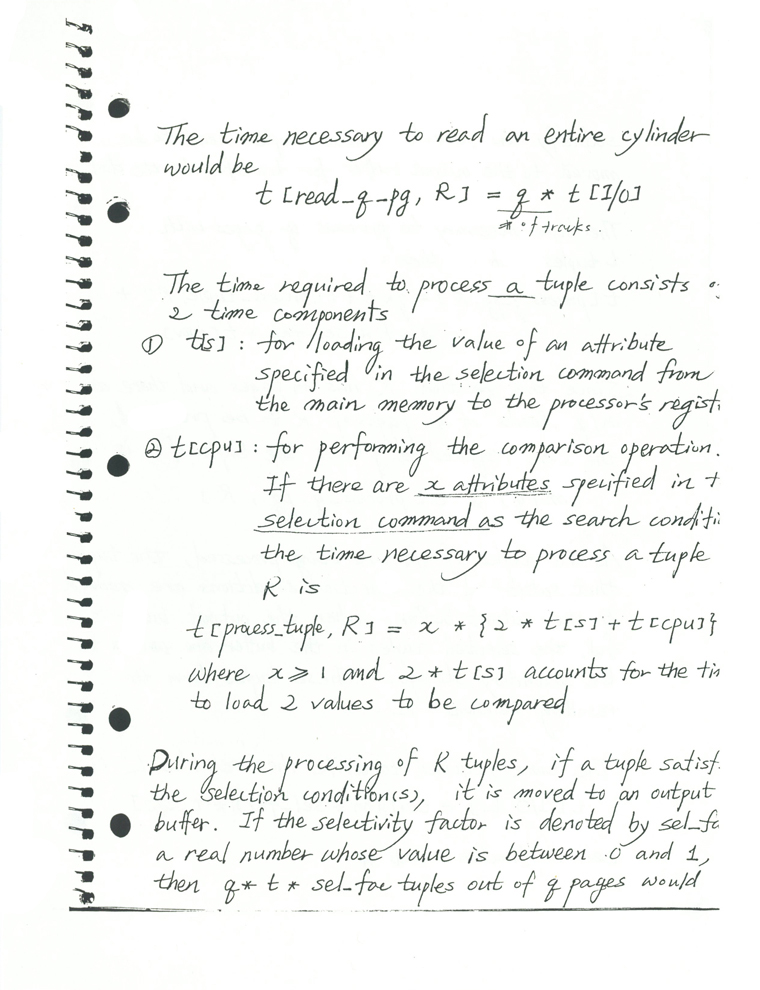 The time necessary to read an entire cylinder
would be
t [read_q_pg, R] = q * t [I/O]
# of tracks.
The time required to process a tuple consists o
2 time components
① t[s] : for loading the value of an attribute
specified in the selection command from
the main memory to the processor's regist
② t[cpu] : for performing the comparison operation.
If there are x attributes specified in t
selection command as the search conditi
the time necessary to process a tuple
R is
t [process_tuple, R] = x * {2 * t[s] + t[cpu]}
where x ⩾ 1 and 2 * t[s] accounts for the tim
to load 2 values to be compared
During the processing of R tuples, if a tuple satisf
the selection condition(s), it is moved to an output
buffer. If the selectivity factor is denoted by sel_fa
a real number whose value is between 0 and 1,
then q * t * sel_fac tuples out of q pages would